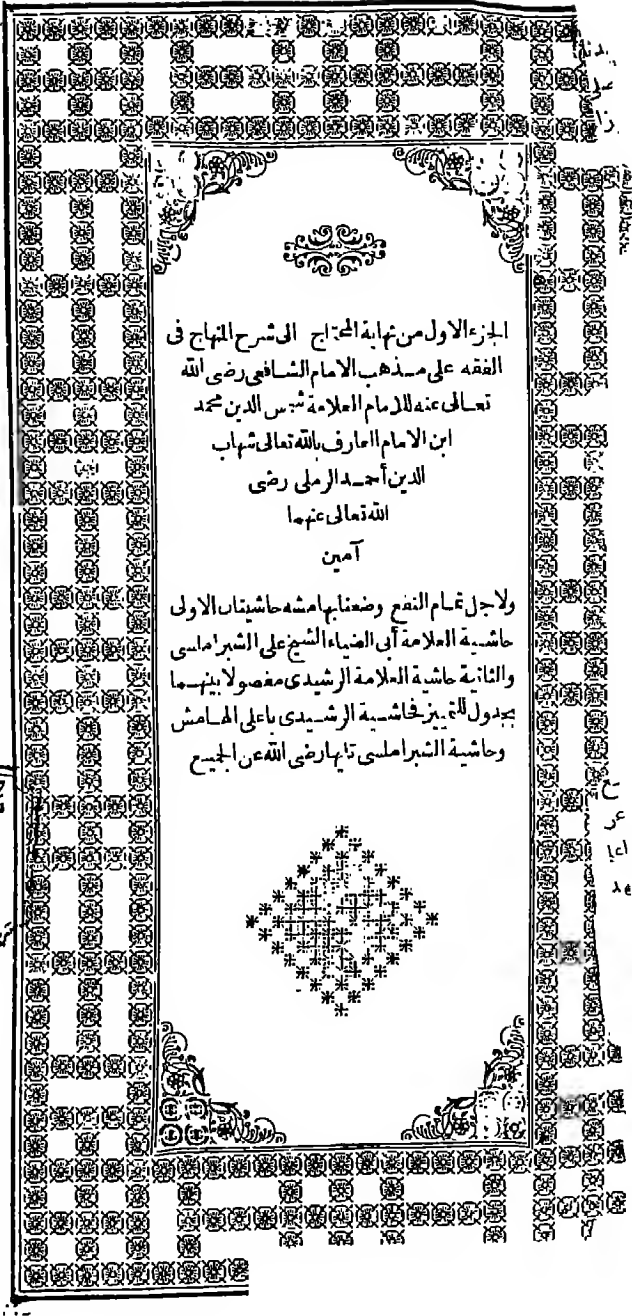 الجزء الاول من نهاية المحتاج الى شرح المنهاج فى
الفقه على مذهب الامام الشافعى رضى الله
تعالى عنه للامام العلامة شمس الدين محمد
ابن الامام العارف بالله تعالى شهاب
الدين أحمد الرملى رضى
الله تعالى عنهما
آمين
ولاجل تمام النفع وضعنا بهامشه حاشيتان الاولى
حاشية العلامة أبى الضياء الشيخ على الشبراملسى
والثانية حاشية العلامة الرشيدى مفصولا بينهما
بجدول للتمييز فحاشية الرشيدى باعلى الهامش
وحاشية الشبراملسى تايها رضى الله عن الجميع